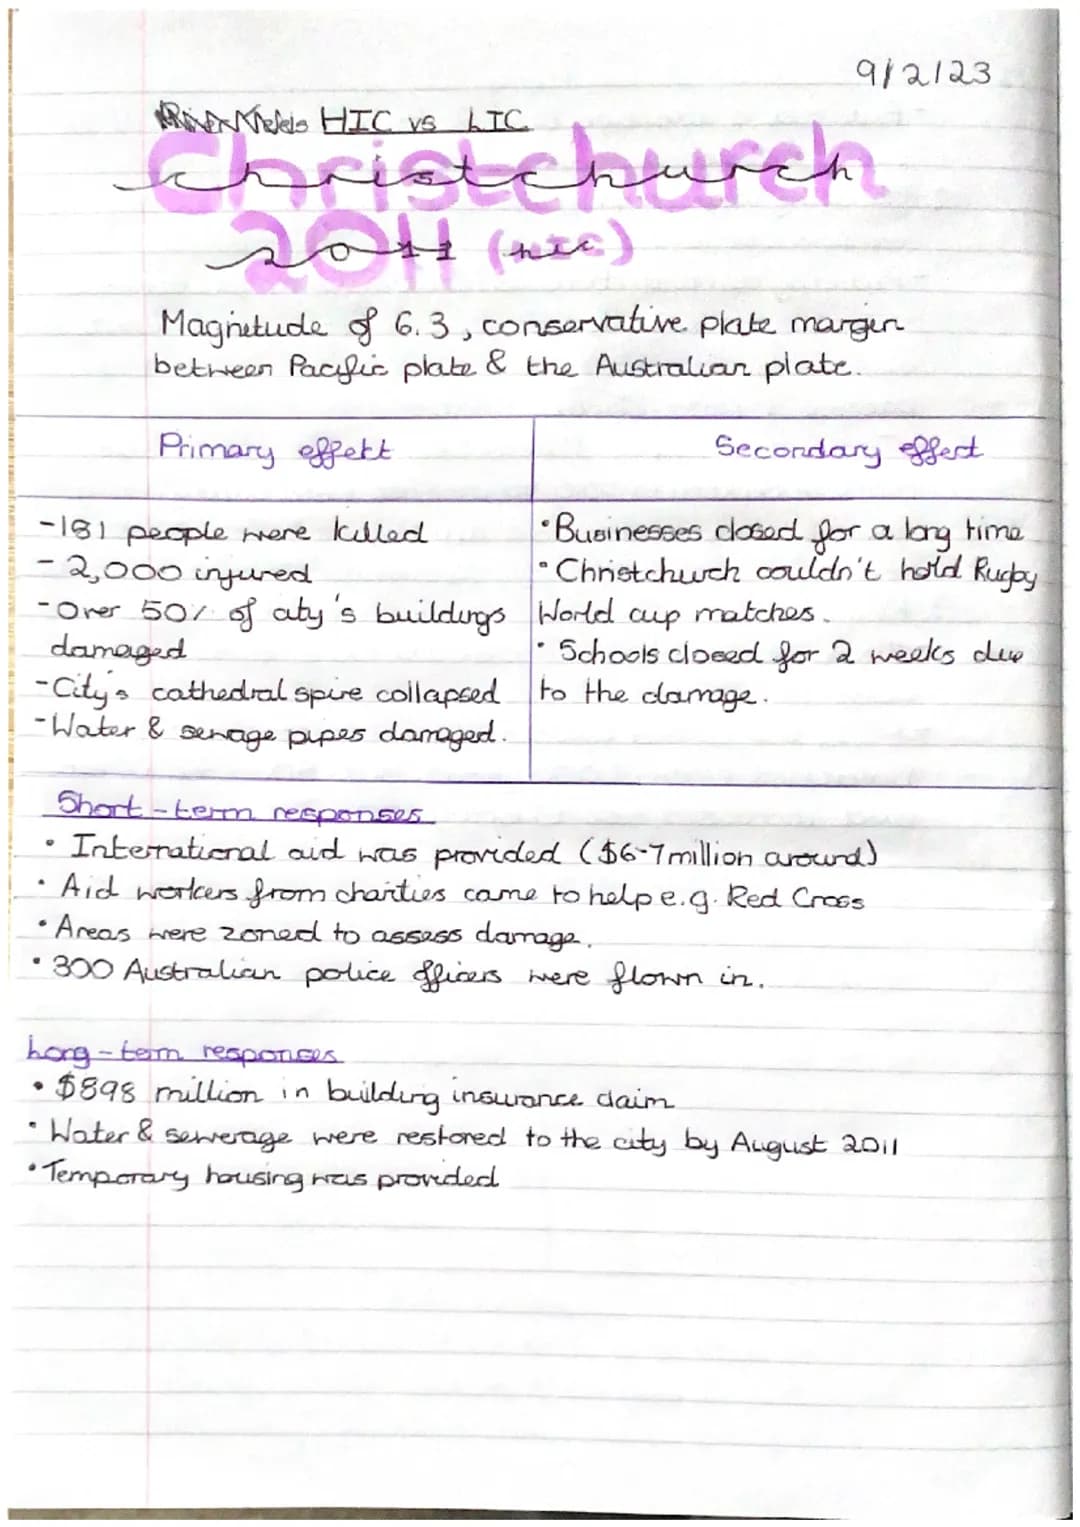 9/2/23
HIC vs LIC
Christchurch
2011 (HIC)
Magnitude of 6.3, conservative plate margin
between Pacific plate & the Australian plate.
Primary effekt
Secondary effect
-181 people were killed
- 2,000 injured
-Over 50% of city's buildings
damaged
-City's cathedral spire collapsed
-Water & sewage pipes damaged.
•Businesses closed for a long time
•Christchurch couldn't hold Rugby
World cup matches.
• Schools closed for 2 weeks due
to the damage.
Short-term responses
• International aid was provided ($6-7 million around)
• Aid workers from charities came to help e.g. Red Cross
• Areas were zoned to assess damage.
• 300 Australian police officers were flown in.
Long-term responses
• $898 million in building insurance claim
• Water & sewerage were restored to the city by August 2011
• Temporary housing was provided